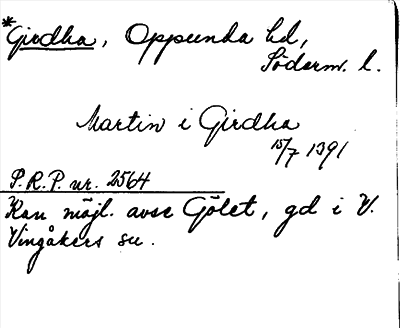 *Girdha, Oppunda hd,
Söderm. l.
Martin i Girdha
15/7 1391
P.R.P. nr. 2564
Kan möjl. avse Gölet, gd i V.
Vingåkers sn.